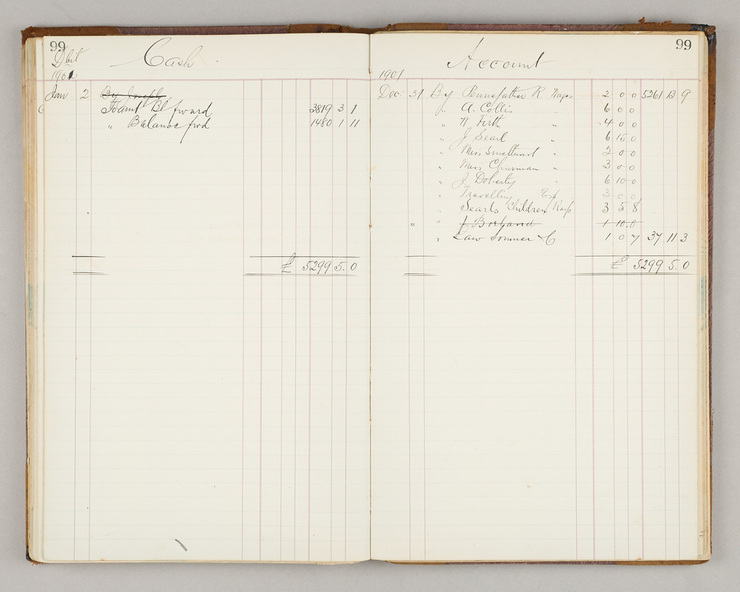 99
Debit Cash
1901
Jan 2 By Joseph
To Amt Bt forward 3819 3 1
" Balance fwd 1480 1 11
£ 5299 5. 0
Account 99
1901
Dec 31 By R Wages 2 0 0 5261 13 9
A. Collis " 6 0 0
" Firth " 4 0 0
" J Searl 6 15 0
" Miss " 2 0 0
" Miss Chapman " 3 0 0
" J Doherty " 6 10 0
" Travelling Exp 3 0 0
" Searls Children 3 5 8
" J 1 10.0
" Law & C 1 0 7 37 11 3
£ 5299 5. 0